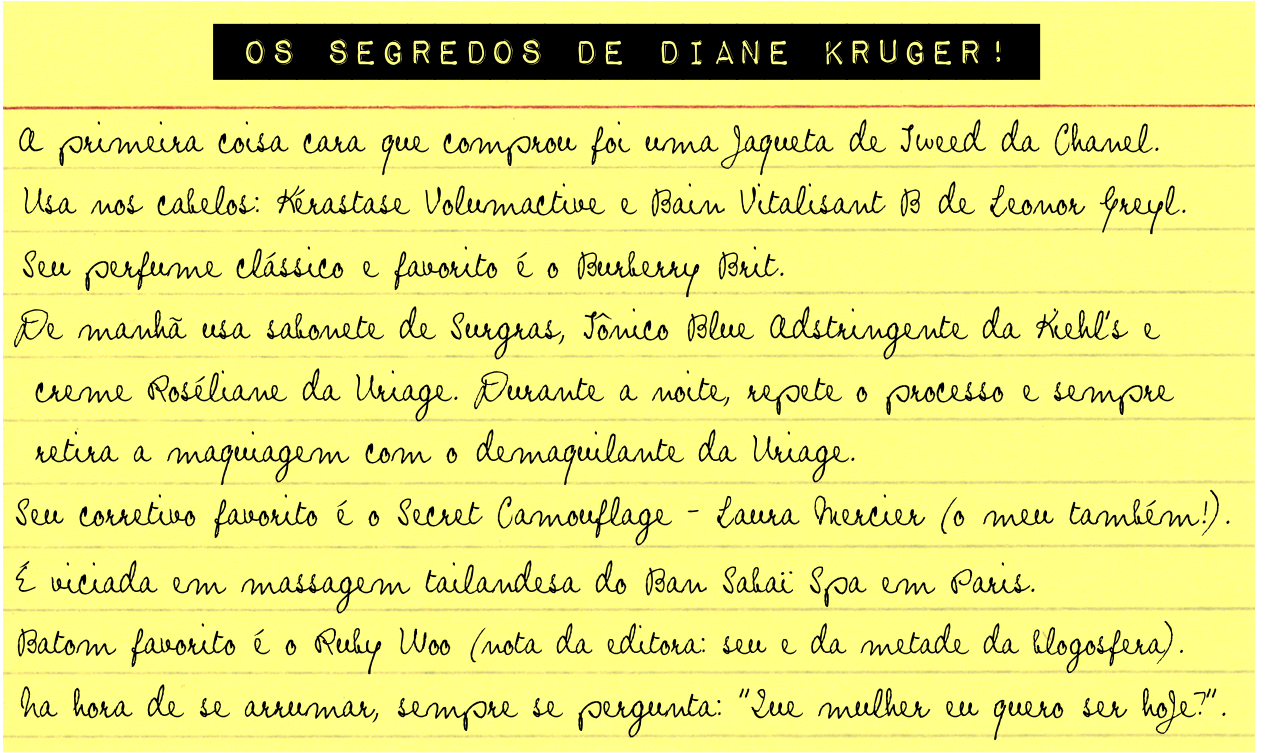 OS SEGREDOS DE DIANE KRUGER!
A primeira coisa cara que comprou foi uma Jaqueta de Tweed da Chanel.
Usa nos cabelos: Kérastase Volumactive e Bain Vitalisant B de Leonor Greyl.
Seu perfume clássico e favorito é o Burberry Brit.
De manhã usa sabonete de Surgras, Tônico Blue Adstringente da Kiehl's e
creme Roséliane da Uriage. Durante a noite, repete o processo e sempre
retira a maquiagem com o demaquilante da Uriage.
Seu corretivo favorito é o Secret Camouflage - Laura Mercier (o meu também!).
É viciada em massagem tailandesa do Ban Sabaï Spa em Paris.
Batom favorito é o Ruby Woo (nota da editora: seu e da metade da blogosfera).
Na hora de se arrumar, sempre se pergunta: "Que mulher eu quero ser hoJe?".